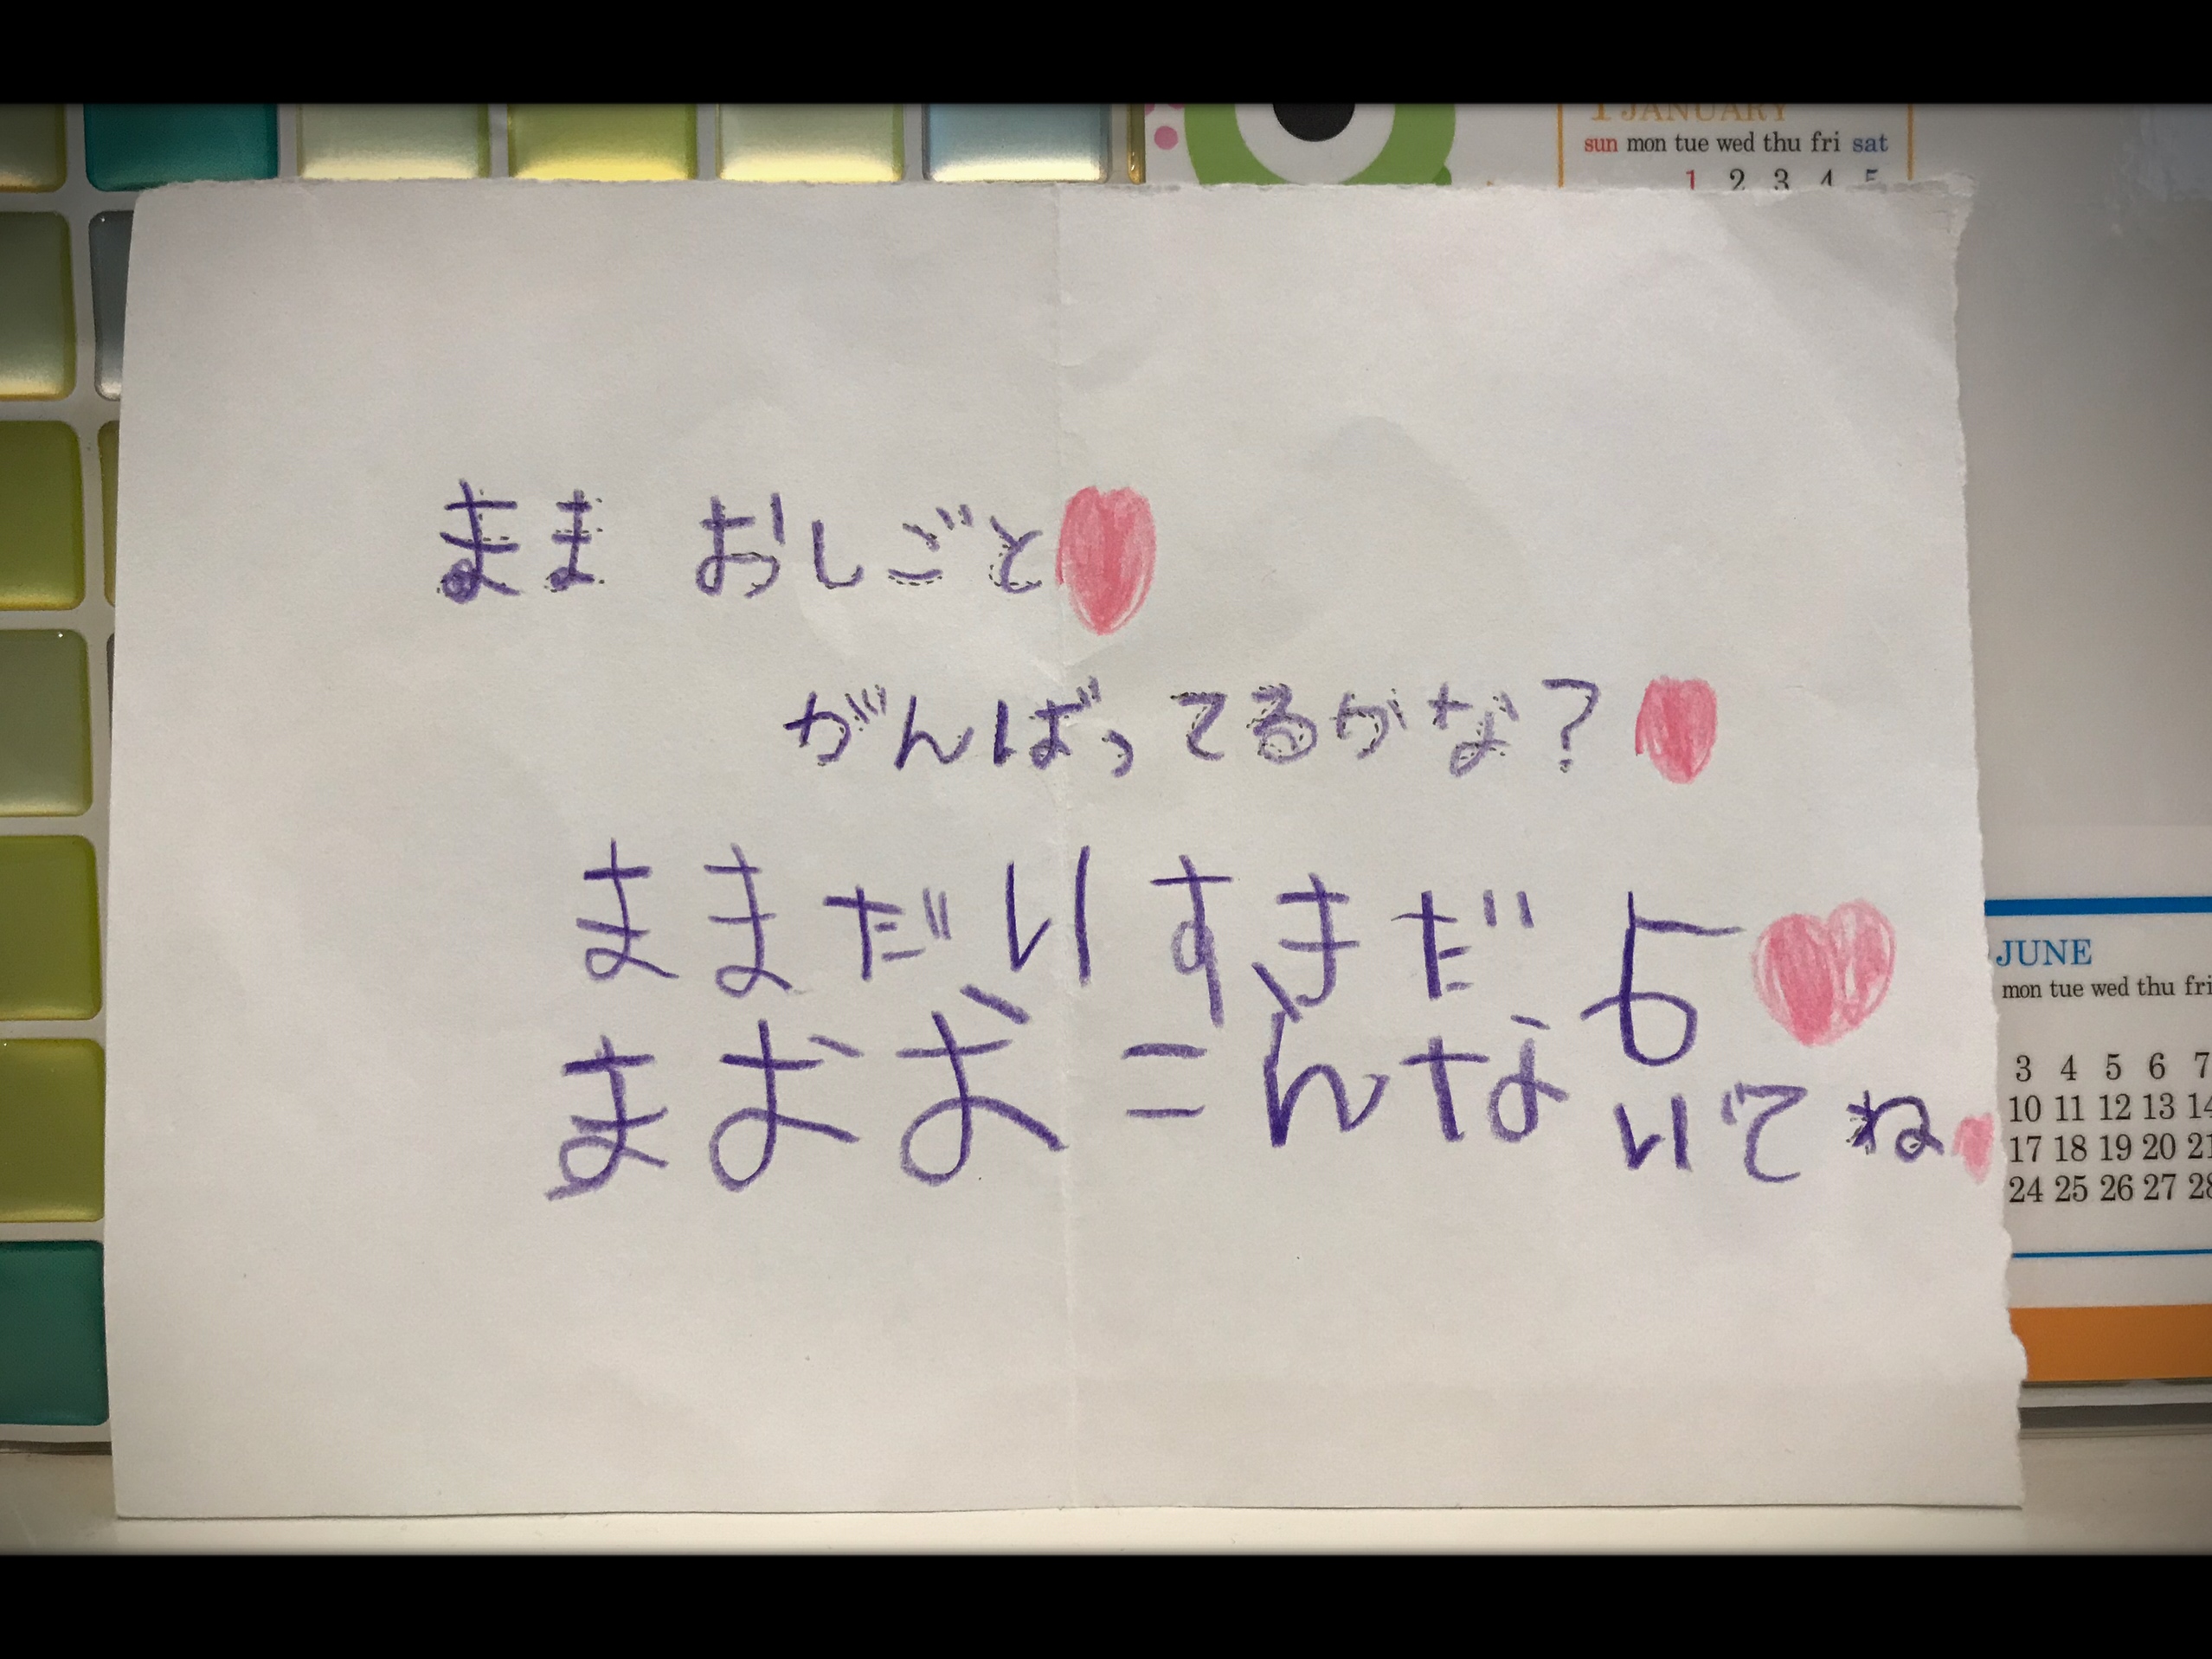 1 JANUARY
sun mon tue wed thu fri sat
1 2 3 4 5
まま おしごと
がんばってるかな?
ままだいすきだよ
まおおこんないでね
JUNE
mon tue wed thu fri
3 4 5 6 7
10 11 12 13 14
17 18 19 20 21
24 25 26 27 28